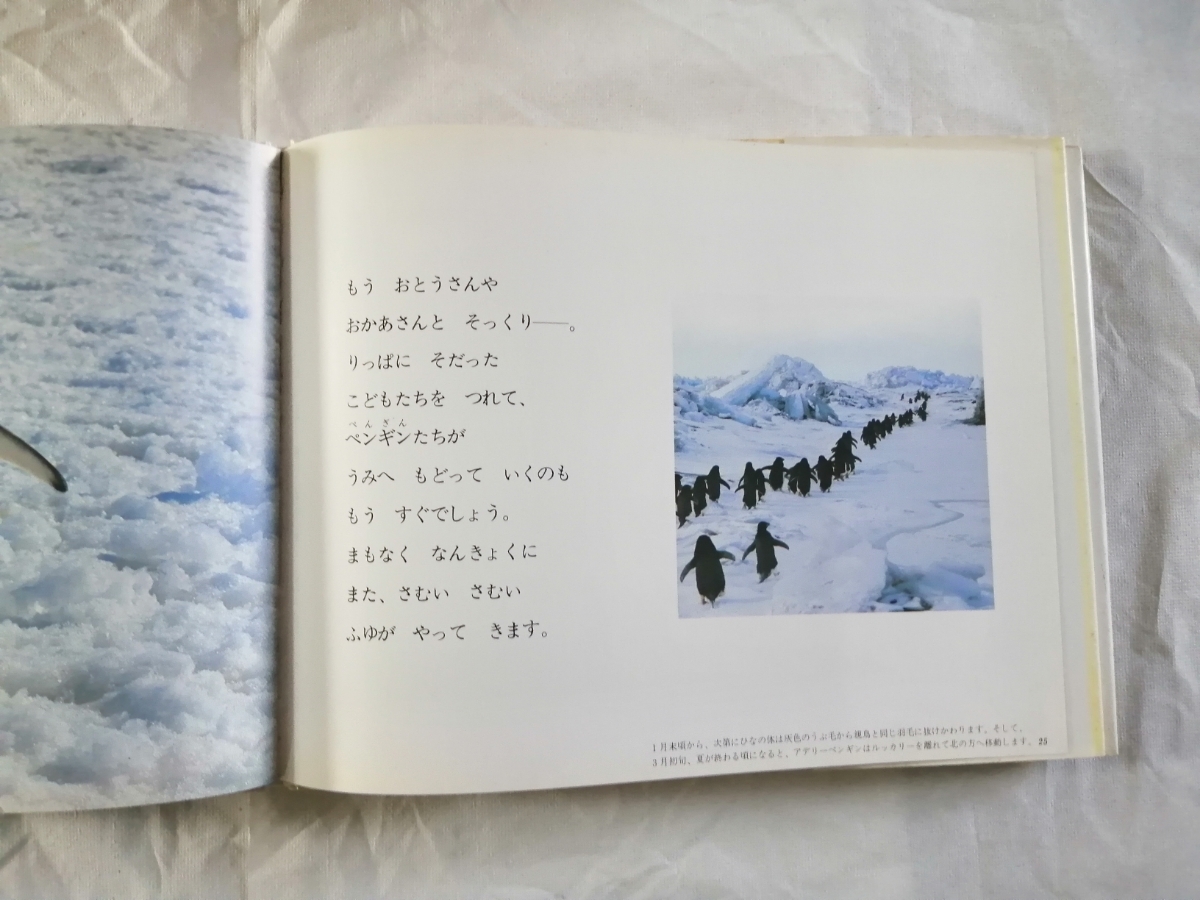 もう　おとうさんや
おかあさんと　そっくり――。
りっぱに　そだった
こどもたちを　つれて、
ぺんぎん
ペンギンたちが
うみへ　もどって　いくのも
もう　すぐでしょう。
まもなく　なんきょくに
また、さむい　さむい
ふゆが　やって　きます。
1月末頃から、次第にひなの体は灰色のうぶ毛から親鳥と同じ羽毛に抜けかわります。そして、
3月初旬、夏が終わる頃になると、アデリーペンギンはルッカリーを離れて北の方へ移動します。 25